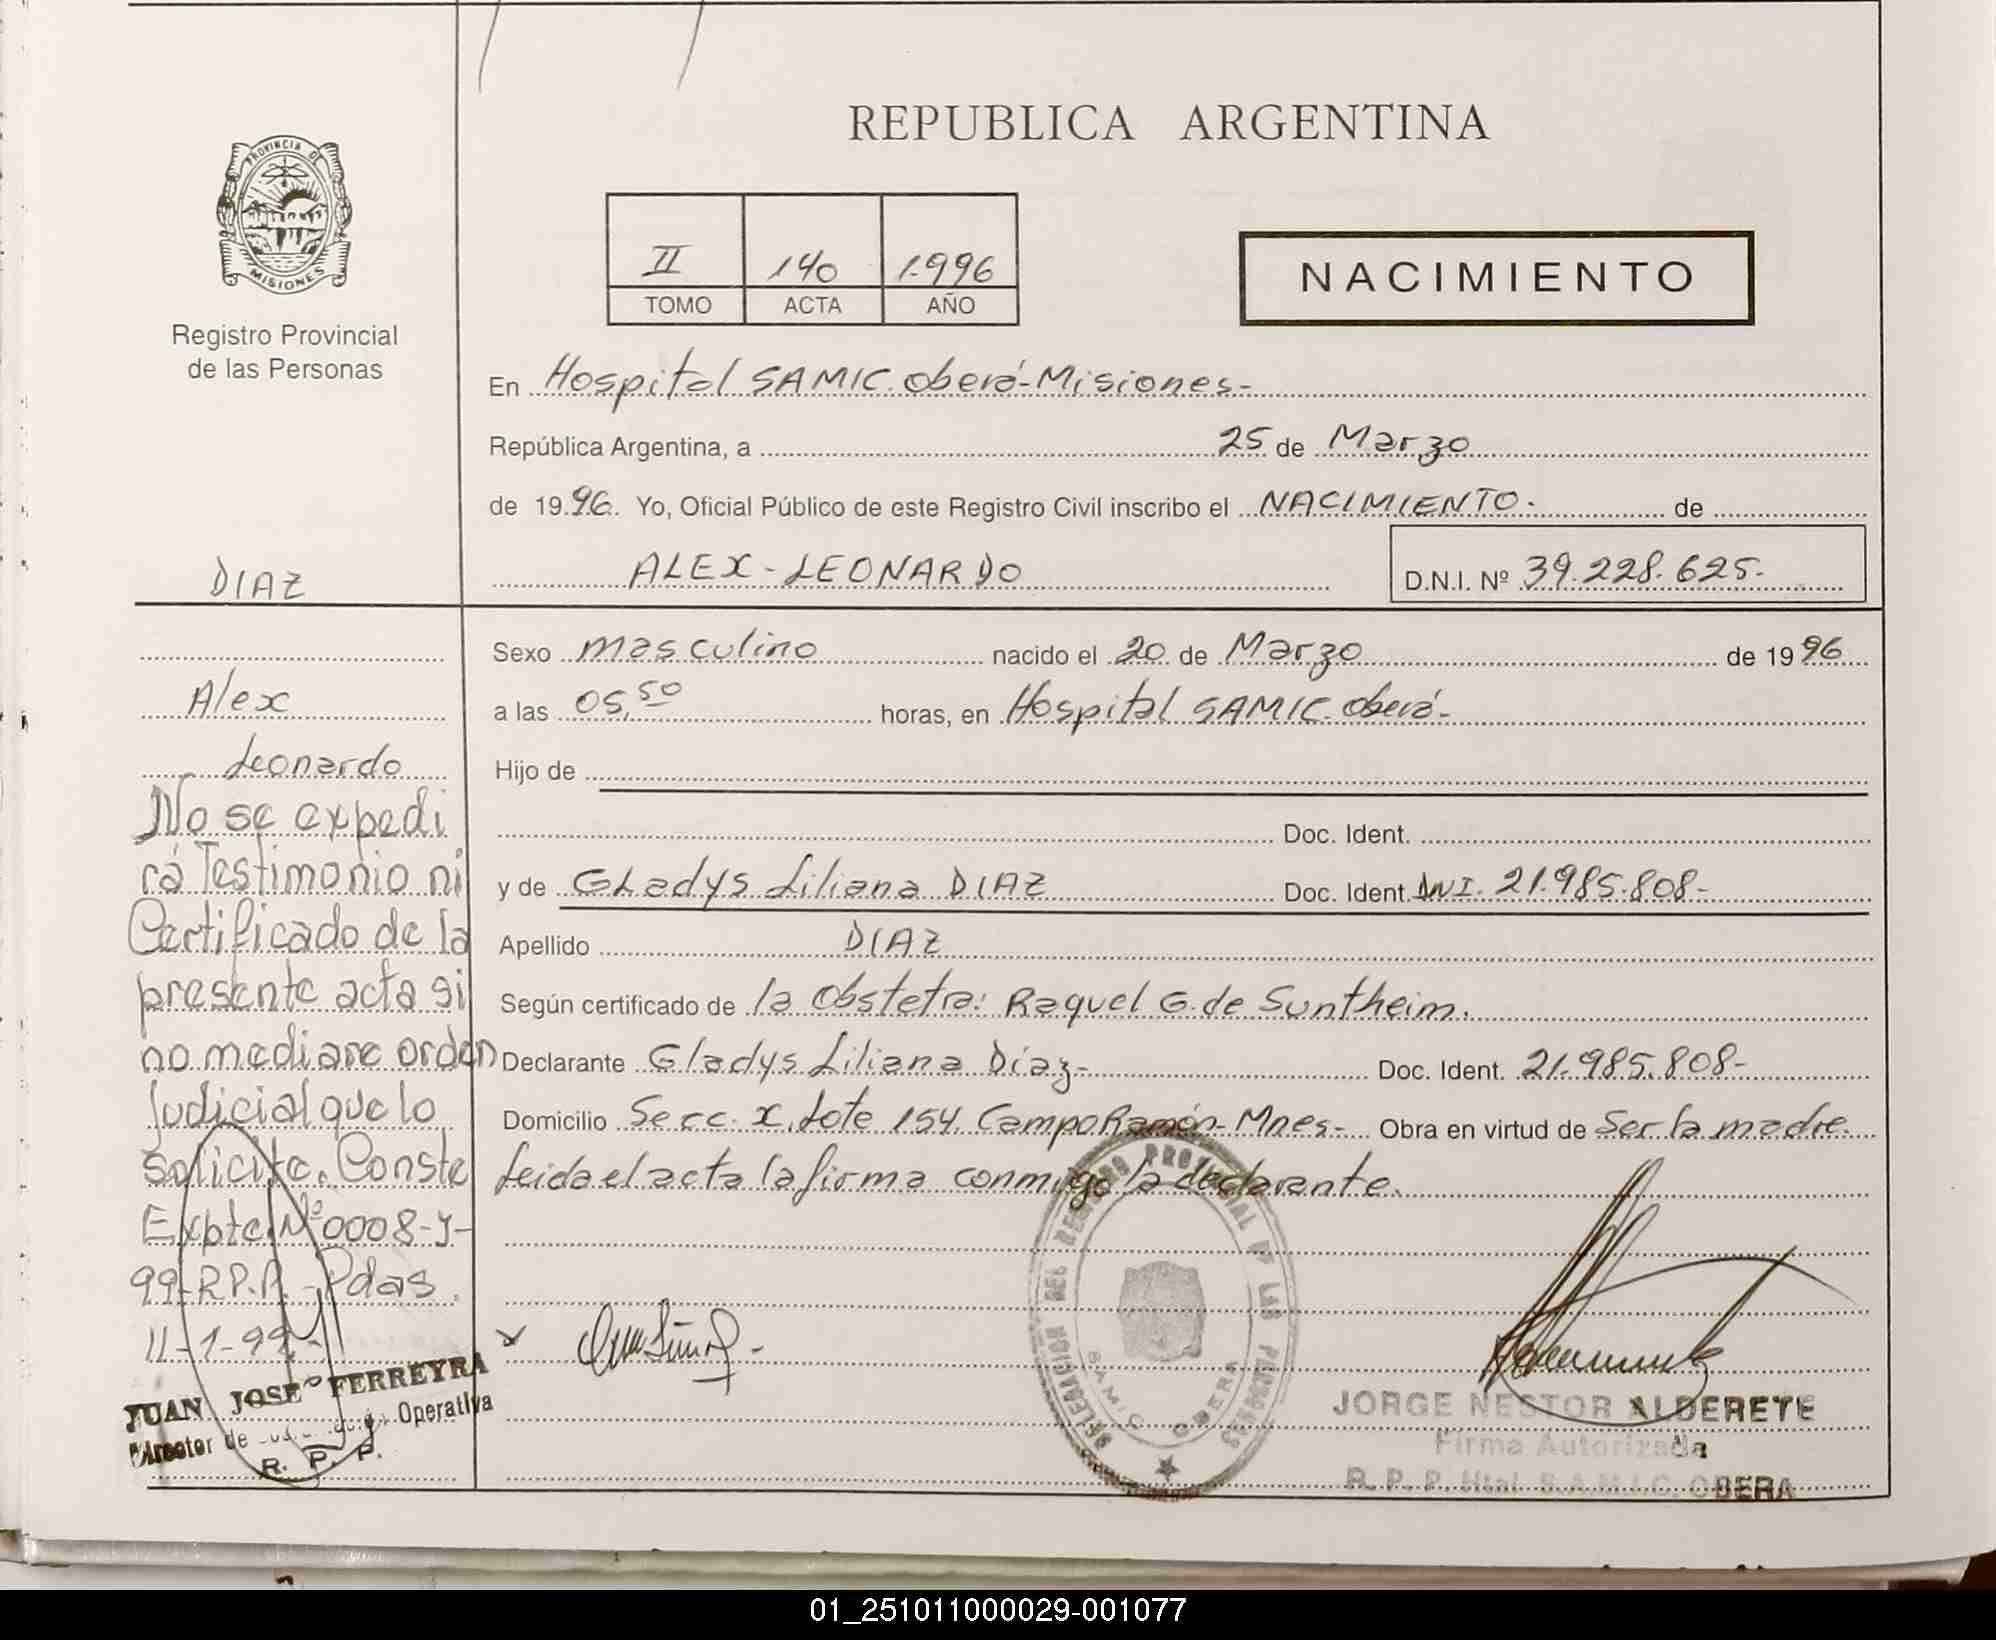 REPUBLICA ARGENTINA
PROVINCIA DE
MISIONES
Registro Provincial
de las Personas
II 140 1.996
TOMO ACTA AÑO
NACIMIENTO
En Hospital SAMIC. Oberá-Misiones-
República Argentina, a 25 de Marzo
de 19 96. Yo, Oficial Público de este Registro Civil inscribo el NACIMIENTO. de
ALEX-LEONARDO D.N.I. Nº 39.228.625.
DIAZ
Alex
Leonardo
No se expedi
rá Testimonio ni
Certificado de la
presente acta si
no mediare orden
Judicial que lo
solicite. Conste
Expte. Nº 0008-Y-
99-R.P.P.-Pdas.
11-1-99-
JUAN JOSE FERREYRA
Director de Operativa
R. P. P.
Sexo masculino nacido el 20 de Marzo de 19 96
a las 05,50 horas, en Hospital SAMIC. Oberá-
Hijo de
Doc. Ident.
y de GLadys Liliana DIAZ Doc. Ident. DNI. 21.985.808-
Apellido DIAZ
Según certificado de la Obstetra: Raquel G. de Suntheim.
Declarante Gladys Liliana Díaz- Doc. Ident. 21.985.808-
Domicilio Secc. X, Lote 154. Campo Ramón-Mnes- Obra en virtud de Ser la madre.
Leida el acta la firma conmigo la declarante.
DELEGACION DEL REGISTRO PROVINCIAL DE LAS PERSONAS
SAMIC OBERA
JORGE NESTOR ALDERETE
Firma Autorizada
R. P. P. Htal. S.A.M.I.C. OBERA
01_251011000029-001077